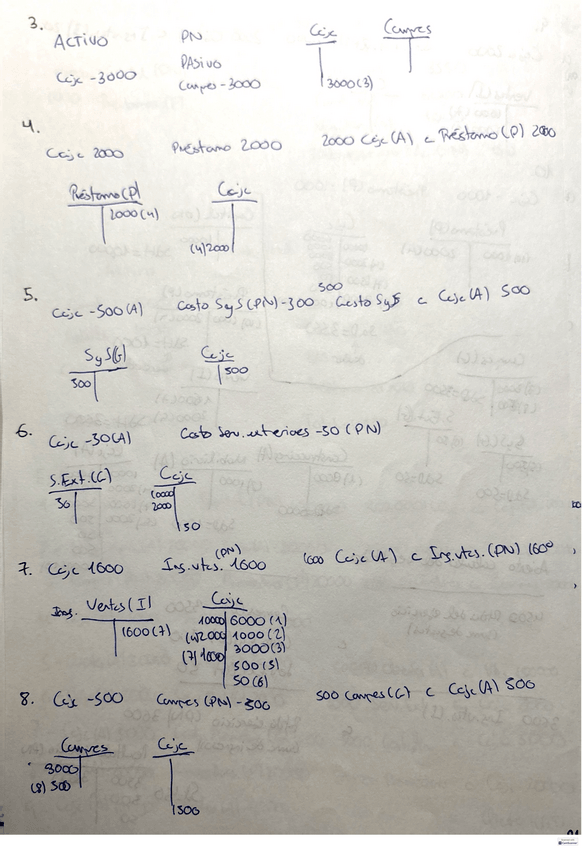 3.
ACTIVO PN Caja Compras
PASIVO
Caja -3000 Compras -3000 3000 (3)
4.
Caja 2000 Préstamo 2000 2000 Caja (A) a Préstamo (P) 2000
Préstamo (P) Caja
2000 (4)
(4) 2000
5.
500
Caja -500 (A) Gasto SyS (PN) -300 Gasto SyS a Caja (A) 500
SyS (G) Caja
500 500
6. Caja -50 (A) Gasto Serv. exteriores -50 (PN)
S. Ext. (G) Caja
50 10000
2000
50
(PN)
7. Caja 1600 Ing. vtas. 1600 1600 Caja (A) a Ing. vtas. (PN) 1600
Ing. Ventas (I) Caja
1600 (7) 10000 6000 (1)
(4) 2000 1000 (2)
(7) 1000 3000 (3)
500 (5)
50 (6)
8. Caja -500 Compras (PN) -500 500 Compras (G) a Caja (A) 500
Compras Caja
3000
(8) 500
500